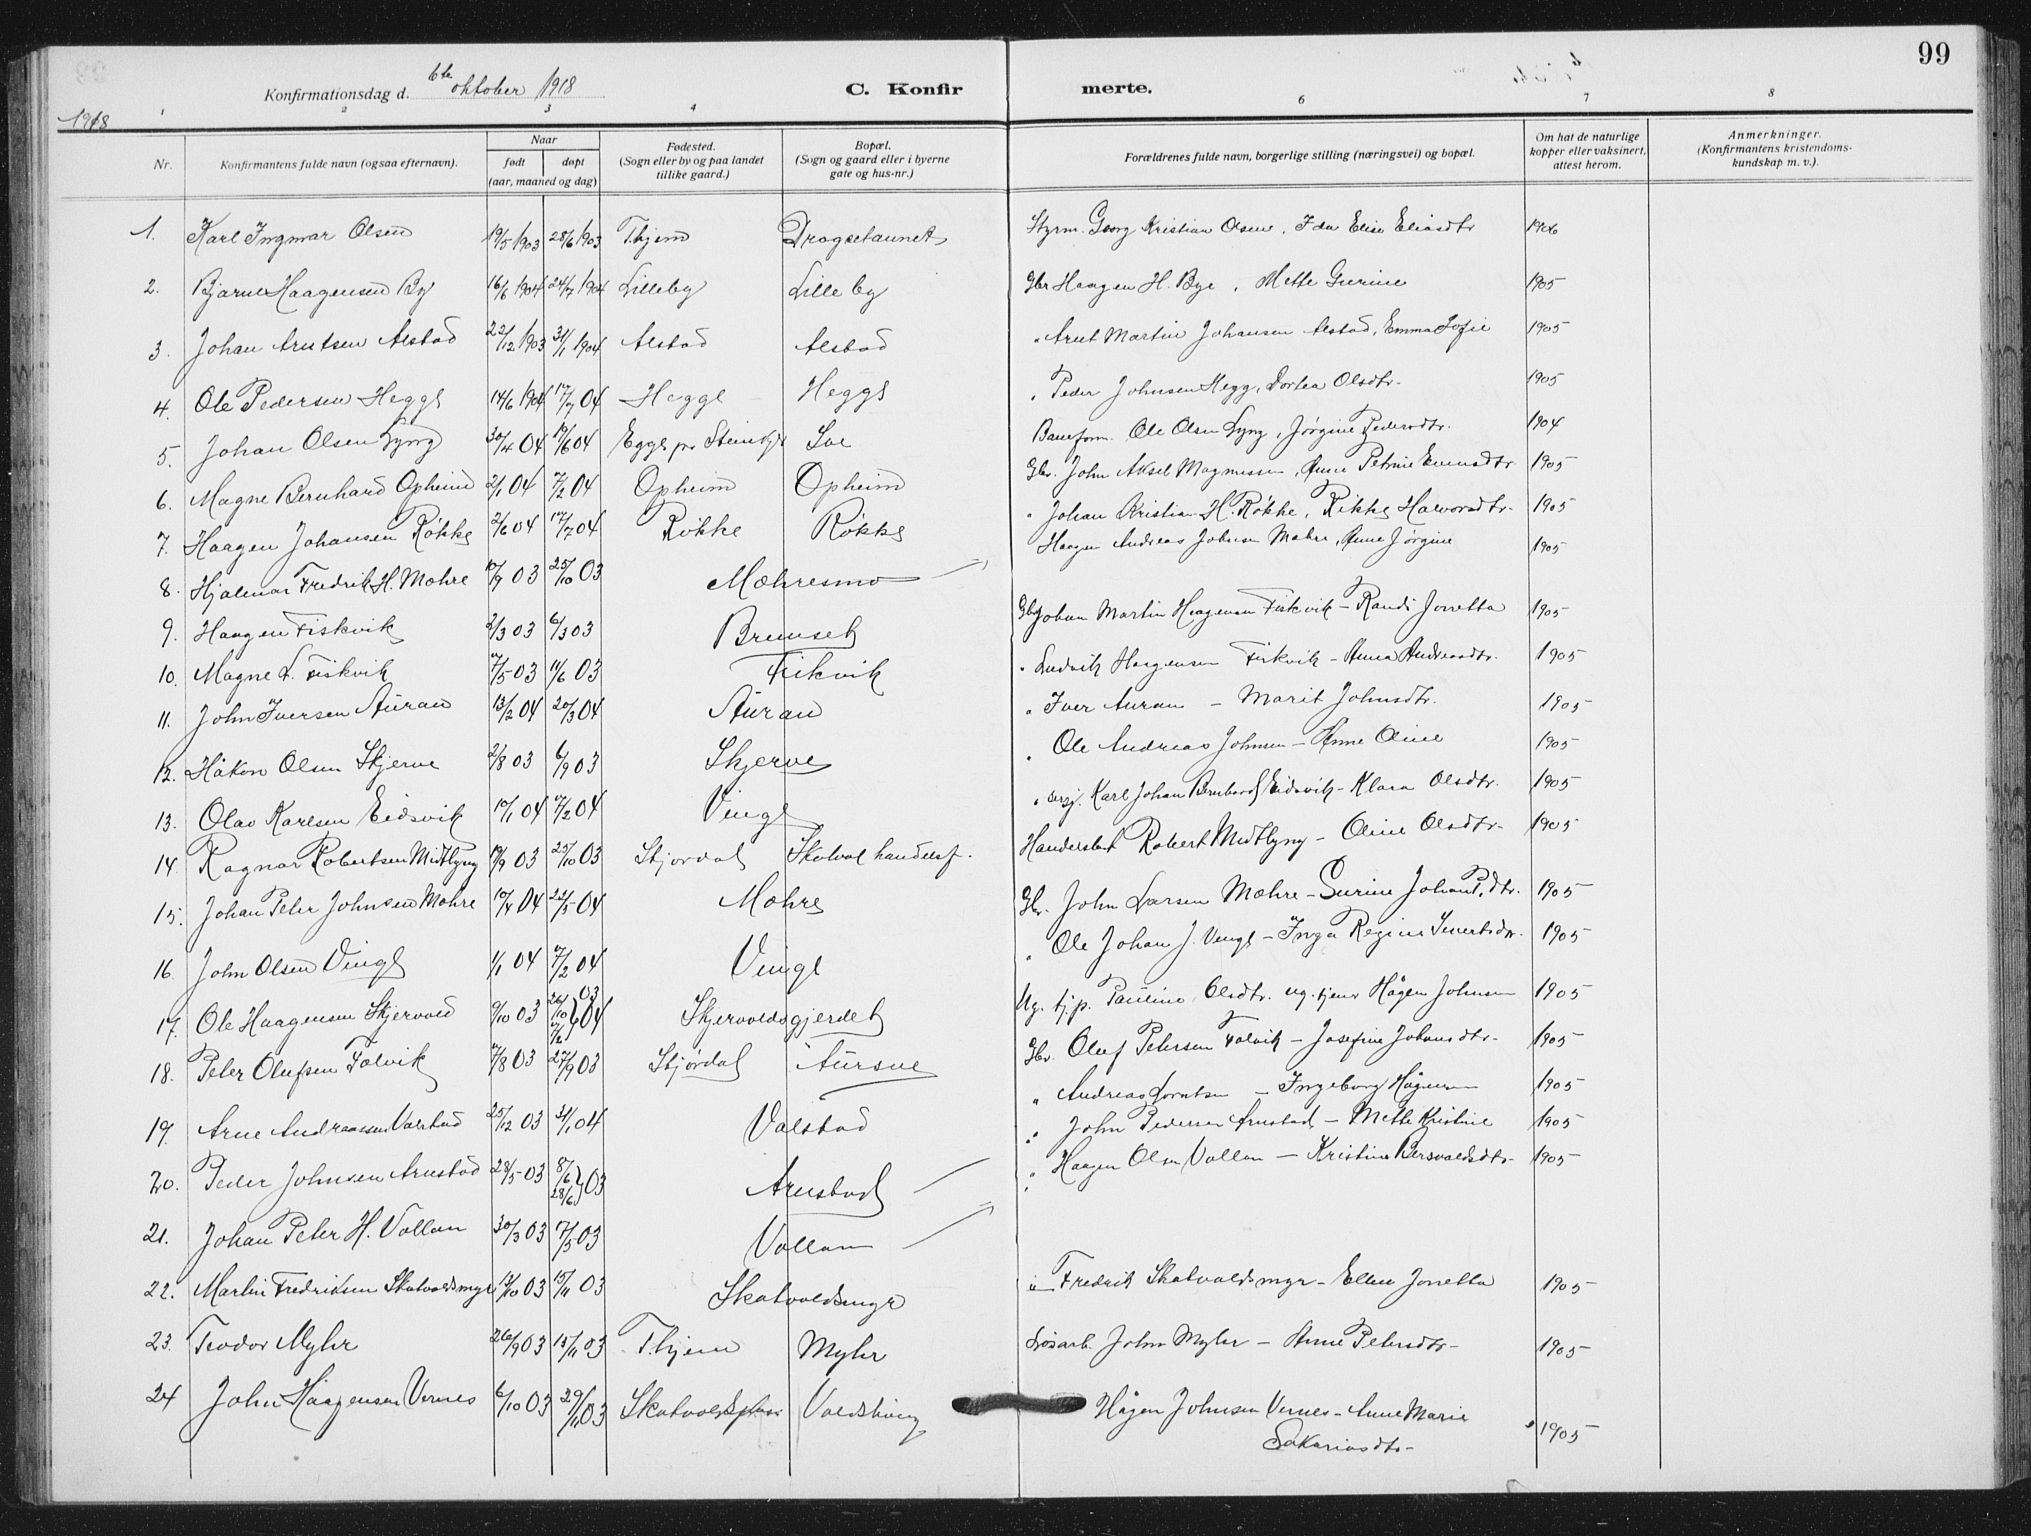 99
Konfirmationsdag d. 6te oktober 1918
C. Konfirmerte.
1918
1 2 3 4 6 7 8
Nr.
Konfirmantens fulde navn (ogsaa efternavn).
Naar
født døpt
(aar, maaned og dag)
Fødested.
(Sogn eller by og paa landet
tillike gaard.)
Bopæl.
(Sogn og gaard eller i byerne
gate og hus-nr.)
Forældrenes fulde navn, borgerlige stilling (næringsvei) og bopæl.
Om hat de naturlige
kopper eller vaksinert,
attest herom.
Anmerkninger.
(Konfirmantens kristendoms-
kundskap m. v.)
1. Karl Ingmar Olsen 19/5 1903 28/6 1903 Thjem Dragsetaunet Styrm. Georg Kristian Olsen, Ida Elise Eliasdtr 1906
2. Bjarne Haagensen By 16/6 1904 24/7 1904 Lilleby Lilleby Gbr Haagen H. Bye, Mette Gurine 1905
3. Johan Arntsen Alstad 22/12 1903 31/1 1904 Alstad Alstad " Arnt Martin Johansen Alstad, Emma Sofie 1905
4. Ole Pedersen Hegge 14/6 1904 17/7 04 Hegge Hegge " Peder Johnsen Hegg, Dortea Olsdtr. 1905
5. Johan Olsen Lyng 30/4 04 19/6 04 Egge pr Steinkjer Loe Baneform. Ole Olsen Lyng, Jørgine Pedersdtr. 1904
6. Magne Bernhard Opheim 2/1 04 7/2 04 Opheim Opheim Gbr. John Aksel Magnussen, Anne Petrine Evensdtr 1905
7. Haagen Johansen Røkke 2/6 04 17/7 04 Røkke Røkke " Johan Kristian H. Røkke, Rikke Halvorsdtr. 1905
8. Hjalmar Fredrik H. Mæhre 10/9 03 25/10 03 Mæhresmo Haagen Andreas Johnsen Mæhre, Anne Jørgine 1905
9. Haagen Fiskvik 2/3 03 6/3 03 Bremset Gbr Johan Martin Haagensen Fiskvik - Randi Jonetta 1905
10. Magne L. Fiskvik 7/5 03 11/6 03 Fiskvik " Ludvik Haagensen Fiskvik - Anna Andreasdtr. 1905
11. John Iversen Auran 13/2 04 20/3 04 Auran " Iver Auran - Marit Johnsdtr. 1905
12. Håkon Olsen Skjerve 2/8 03 6/9 03 Skjerve " Ole Andreas Johnsen - Anne Oline 1905
13. Olav Karlsen Eidsvik 10/1 04 7/2 04 Vinge " sersj. Karl Johan Bernhard Eidsvik - Klara Olsdtr. 1905
14. Ragnar Robertsen Midtlyng 19/9 03 25/10 03 Stjørdal Skatval handelsf. Handelsbest Robert Midtlyng - Oline Olsdtr. 1905
15. Johan Peter Johnsen Mæhre 10/4 04 22/5 04 Mæhre Gbr. John Larsen Mæhre - Gurine Johan P.dtr. 1905
16. John Olsen Vinge 1/1 04 7/2 04 Vinge " Ole Johan J. Vinge - Inga Regine 1905
17. Ole Haagensen Skjervold 9/10 03 26/10 03 7/2 04 Skjervoldsgjerdet Ug. tj.p. Pauline Olsdtr. ug. tjener Hågen Johnsen 1905
18. Peter Olufsen Folvik 7/8 03 27/9 03 Stjørdal Aursve Gbr. Oluf Petersen Folvik - Josefine Johansdtr. 1905
19. Arne Andreassen Valstad 25/12 03 31/1 04 Valstad " Andreas Lorntsen - Ingeborg Hågensen 1905
20. Peder Johnsen Arnstad 28/5 03 8/6 28/6 03 Arnstad " John Pedersen Arnstad - Mette Kristine 1905
21. Johan Peter H. Vollan 30/3 03 7/5 03 Vollan " Haagen Olsen Vollan - Kristine Bersvendsdtr. 1905
22. Martin Fredriksen Skatvoldsmyr 17/10 03 15/11 03 Skatvoldsmyr " Fredrik Skatvoldsmyr - Ellen Jonetta 1905
23. Teodor Myhr 26/9 03 15/11 03 Thjem Myhr Løsarb. John Myhr - Anne Petersdtr. 1905
24 John Haagensen Vernes 6/10 03 29/11 03 Skatvoldsplass Voldshaug Hågen Johnsen Vernes - Anne Marie
Sakariasdtr. 1905